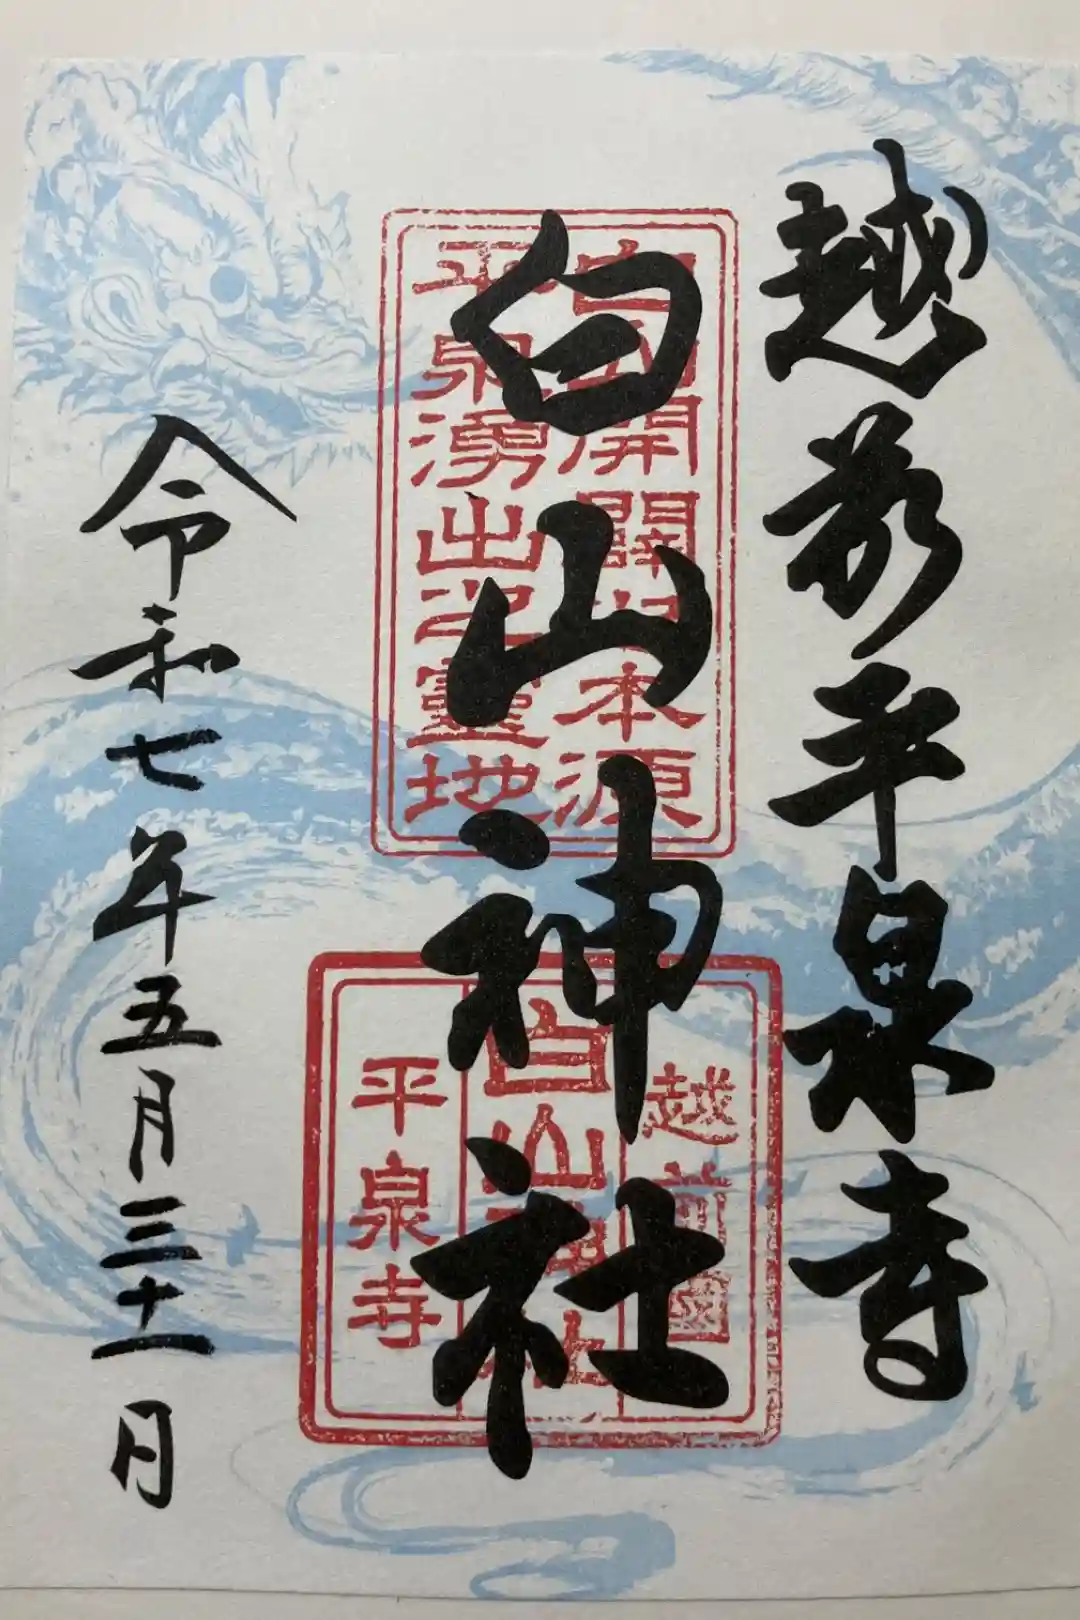 越前平泉寺
白山神社
令和七年五月三十一日
白山開闢之本源
平泉湧出之靈地
越前國
白山神社
平泉寺